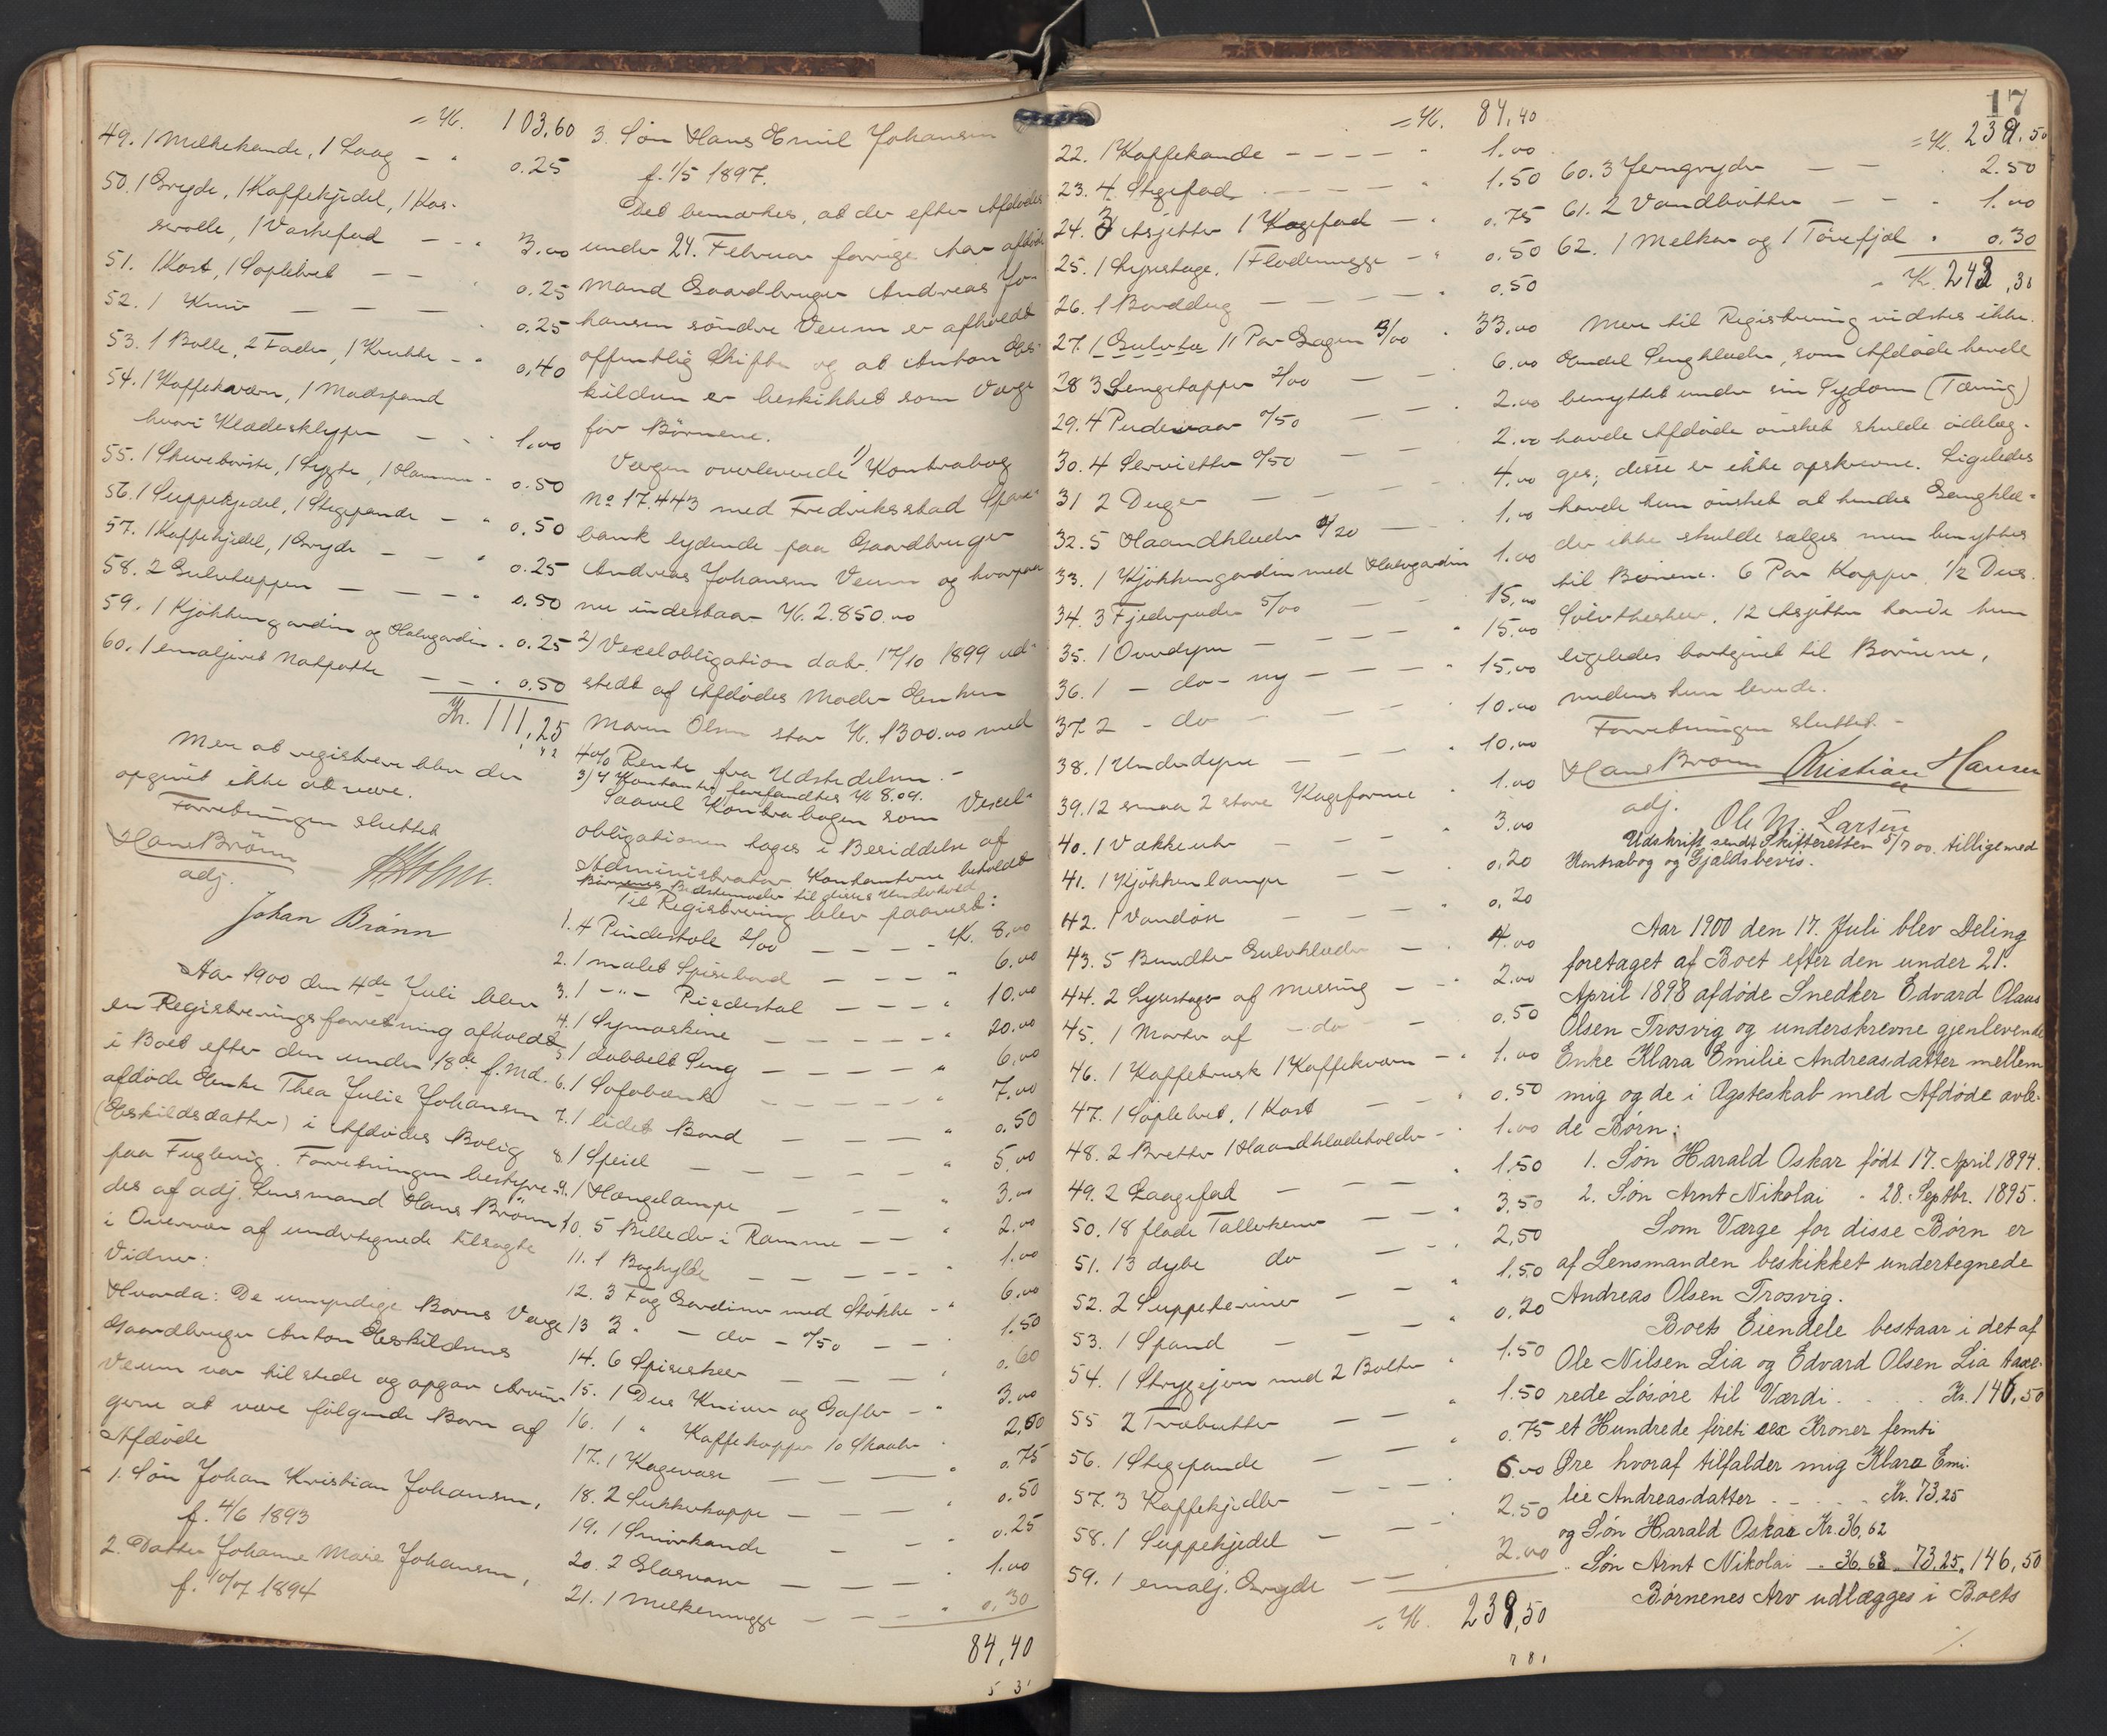 = Kr. 103,60
49. 1 Melkekande, 1 Laag - " 0.25
50. 1 Gryde, 1 Kaffekjedel, 1 Kas-
serolle, 1 Vaskefad - - " 3.00
51. 1 Kost, 1 Soplebret - - " 0.25
52. 1 Kniv - - - " 0.25
53. 1 Bolle, 2 Fade, 1 Krukke - " 0,40
54. 1 Kaffekværn, 1 Madspand
hvori Klædesklyper - - " 1,00
55. 1 Skurebørste, 1 Lygte, 1 Hammer " 0.50
56. 1 Suppekjedel, 1 Stegepande - " 0.50
57. 1 Kaffekjedel, 1 Gryde - - " 0.25
58. 2 Gulvtæpper - - - " 0.50
59. 1 Kjøkkengardin og Halvgardin " 0.25
60. 1 emaljeret Natpotte - - " 0.50
Kr. 111,25
Mere at registrere blev der
opgivet ikke at være.
Forretningen sluttet
Hans Brönn
adj.
Johan Brånn
Aar 1900 den 4de Juli blev
en Registreringsforretning afholdt
i Boet efter den under 18de f. Md.
afdøde Enke Thea Julie Johansen
(Eskildsdatter) i Afdødes Bolig
paa Fuglevig. Forretningen bestyre-
des af adj. Lensmand Hans Brönn
i Overvær af undertegnede tilsagte
Vidner:
Hvorda: De umyndige Børns Verge
Gaardbruger Anton Eskildsens
Veum var tilstede og opgav Arvin-
gerne at være følgende Børn af
Afdøde
1. Søn Johan Kristian Johansen,
f. 4/6 1893
2. Datter Johanne Marie Johansen,
f. 10/7 1894
3. Søn Hans Emil Johansen
f. 1/5 1897.
Det bemærkes, at der efter Afdødes
under 24. Februar forrige Aar afdøde
Mand Gaardbruger Andreas Jo-
hansen søndre Veum er afholdt
offentlig Skifte og at Anton Es-
kildsen er beskikket som Verge
for Børnene.
Vergen overleverede 1) Kontrabog
No 17.443 med Fredriksstad Spare-
bank lydende paa Gaardbruger
Andreas Johansen Veum og hvorpaa
nu indestaar Kr. 2.850.00
2) Vexelobligation dat. 17/10 1899 ud-
stedt af Afdødes Moder Enken
Maren Olsen stor Kr. 1300.00 med
4% Rente fra Udstedelsen. -
3) I Kontanter forefandtes Kr 8.09.
Saavel Kontrabogen som Vexel-
obligationen toges i Besiddelse af
Administrator Kontanterne beholdt
Børnenes Bedstemoder til disses Underhold
Til Registrering blev paavist:
1. 4 Pindestole 2/00 - - - - Kr. 8.00
2. 1 malet Spisebord - - - " 6.00
3. 1 -"- Piedestal - - - " 10.00
4. 1 Symaskine - - - - " 20.00
5. 1 dobbelt Seng - - - - " 6.00
6. 1 Sofabænk - - - - " 7.00
7. 1 lidet Bord - - - - " 0.50
8. 1 Speil - - - - " 5,00
9. 1 Hængelampe - - - " 3.00
10. 5 Billeder i Ramme - - " 2.00
11. 1 Boghylde - - - - " 1.00
12. 3 Fag Gardiner med Stokke - " 6.00
13 3 " - do - 0/50 - - " 1.50
14. 6 Spiseskeer - - - " 0.60
15. 1 Dus Kniver og Gafler - " 3.00
16. 1 " Kaffekopper 10 Skaaler " 2,50
17. 1 Kagevase - - - - " 0.75
18. 2 Sukkerkopper - - - " 0.50
19. 1 Smørkande - - - " 0.25
20. 2 Glasvaser - - - " 1.00
21. 1 Melkemugge - - - " 0.30
84,40
17
= Kr. 84,40
22. 1 Kaffekande - - - - " 1.00
23. 4 Stegefad - - - - " 1.50
24. 3 Asjetter 1 Kagefad - " 0.75
25. 1 Lysestage, 1 Flødemugge - " 0.50
26. 1 Borddug - - - - " 0.50
27. 1 Gulvtæ 11 Par Lagen 3/00 " 33,00
28 3 Sengetæpper 2/00 - - " 6.00
29. 4 Pudevaar 0/50 - - " 2.00
30. 4 Servietter 0/50 - - " 2.00
31 2 Duger - - - - " 4.00
32. 5 Haandklæder 0/20 - - " 1.00
33. 1 Kjøkkengardin med Halvgardin " 1.00
34. 3 Fjederpuder 5/00 - - " 15,00
35. 1 Overdyne - - - " 15.00
36. 1 - do - ny - - - " 15.00
37. 2 - do - - - - " 10.00
38. 1 Underdyne - - - " 10,00
39. 12 smaa 2 store Kageforme " 1.00
40. 1 Vækkeuhr - - - " 3.00
41. 1 Kjøkkenlampe - - - " 0.20
42. 1 Vandøse - - - " 0.20
43. 5 Bundter Gulvklæder - " 4.00
44. 2 Lysestager af Messing - " 2.00
45. 1 Morter af - do - - " 0.50
46. 1 Kaffebrusk 1 Kaffekværn - " 1.00
47. 1 Soplebret, 1 Kost - - " 0.50
48. 2 Bretter 1 Haandklædeholder - " 1.00
49. 2 Laagefad - - - " 1.50
50. 18 flade Tallerkener - - " 3.50
51. 13 dybe do - - " 2,50
52. 2 Suppeteriner - - " 1.50
53. 1 Spand - - - " 0.20
54. 1 Strygejern med 2 Bolter " 1.50
55 2 Træbutter - - " 1.50
56. 1 Stegepande - - " 0.75
57. 3 Kaffekjedler - - - " 6.00
58. 1 Suppekjedel - - " 2.50
59. 1 emalj. Gryde - - " 2.00
= Kr. 239,50
= Kr. 239.50
60. 3 Jerngryder - - " 2.50
61. 2 Vandbøtter - - - " 1.00
62. 1 Melkar og 1 Tørefjøl " 0.30
Kr. 243,30
Mere til Registrering vidstes ikke.
Endel Sengklæder, som Afdøde havde
benyttet under sin Sygdom (Tæring)
havde Afdøde ønsket skulde ødelæg-
ges; disse er ikke opskrevne. Ligeledes
havde hun ønsket at hendes Gangklæ-
der ikke skulde sælges men benyttes
til Børnene. 6 Par Kopper, 1/2 Dus.
Sølvtheskeer, 12 Asjetter havde hun
ligeledes bortgivet til Børnene,
medens hun levede.
Forretningen sluttet. -
Hans Brönn Kristian Hansen
adj.
Ole M. Larsen
Udskrift sendt Skifteretten 5/7 00. tilligemed
Kontrabog og Gjældsbevis.
Aar 1900 den 17. Juli blev Deling
foretaget af Boet efter den under 21.
April 1898 afdøde Snedker Edvard Olaus
Olsen Trosvig og underskrevne gjenlevende
Enke Klara Emilie Andreasdatter mellem
mig og de i Ægteskab med Afdøde avle-
de Børn:
1. Søn Harald Oskar født 17. April 1894.
2. Søn Arnt Nikolai " 28. Septbr. 1895.
Som Værge for disse Børn er
af Lensmanden beskikket undertegnede
Andreas Olsen Trosvig.
Boets Eiendele bestaar i det af
Ole Nilsen Lia og Edvard Olsen Lia taxe-
rede Løsøre til Værdi . . . . Kr. 146,50
et Hundrede føreti sex Kroner femti
Øre hvoraf tilfalder mig Klara Emi-
lie Andreasdatter . - - . Kr. 73,25
og Søn Harald Oskar Kr. 36,62
" Søn Arnt Nikolai " 36.63 73,25, 146,50
Børnenes Arv udlægges i Boets